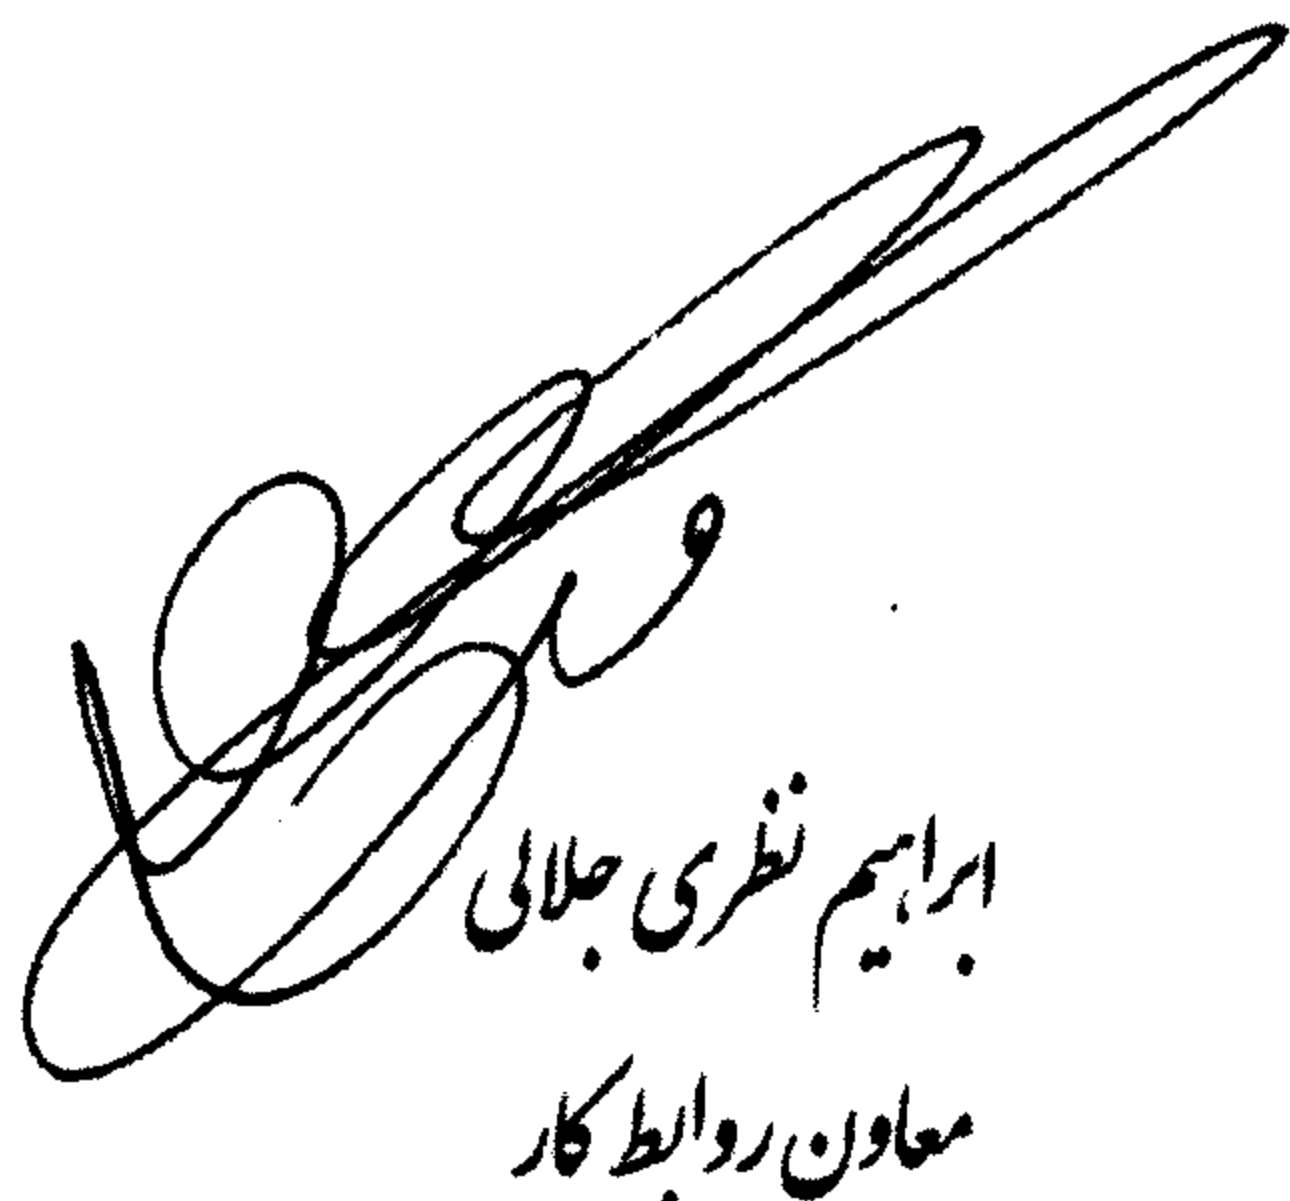 ابراهیم نظری جلالی
معاون روابط کار